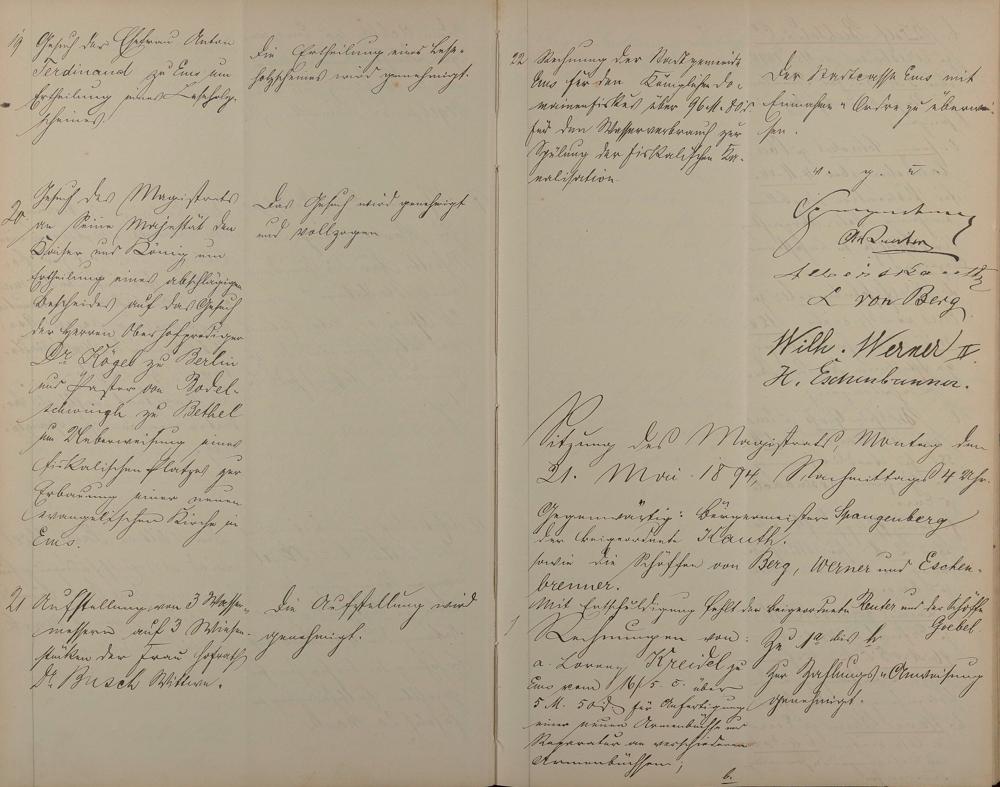 19 Gesuch der Ehefrau Anton
Ferdinand zu Ems um
Ertheilung eines Leseholz-
scheines
Die Ertheilung eines Lese-
holzscheines wird genehmigt.
20. Gesuch des Magistrats
an Seine Majestät den
Kaiser und König um
Ertheilung eines abschlägigen
Bescheides auf das Gesuch
der Herren Oberhofprediger
Dr. Kögel zu Berlin
und Pastor von Bodel-
schwingh zu Bethel
um Ueberweisung eines
fiskalischen Platzes zur
Erbauung einer neuen
evangelischen Kirche in
Ems.
Das Gesuch wird genehmigt
und vollzogen
21 Aufstellung von 3 Wasser-
messern auf 3 Wiesen-
stücken der Frau Hofrath
Dr. Busch Wittwe.
Die Aufstellung wird
genehmigt.
22 Rechnung der Stadtgemeinde
Ems für den Königlichen Do-
mainenfiskus über 96 M. 80 d.
für den Wasserverbrauch zur
Spülung der fiskalischen Ka-
nalisation.
Der Stadtcasse Ems mit
Einnahme-Ordre zu überwei-
sen.
v. g. u.
Spangenberg
Reuter
Albert Kauth
L von Berg
Wilh. Werner II.
H. Eschenbrenner.
Sitzung des Magistrats, Montag den
21. Mai 1894, Nachmittags 4 Uhr.
Gegenwärtig: Bürgermeister Spangenberg
der Beigeordnete Kauth.
sowie die Schöffen von Berg, Werner und Eschen-
brenner.
Mit Entschuldigung fehlt der Beigeordnete Reuter und der Schöffe
Goebel.
1 Rechnungen von:
a. Lorenz Kreidel zu
Ems vom 16/5. c. über
5 M. 50 d für Anfertigung
einer neuen Armenbüchse und
Reparatur an verschiedenen
Armenbüchsen;
Zu 1a bis k
zur Zahlungs-Anweisung
genehmigt.
b.